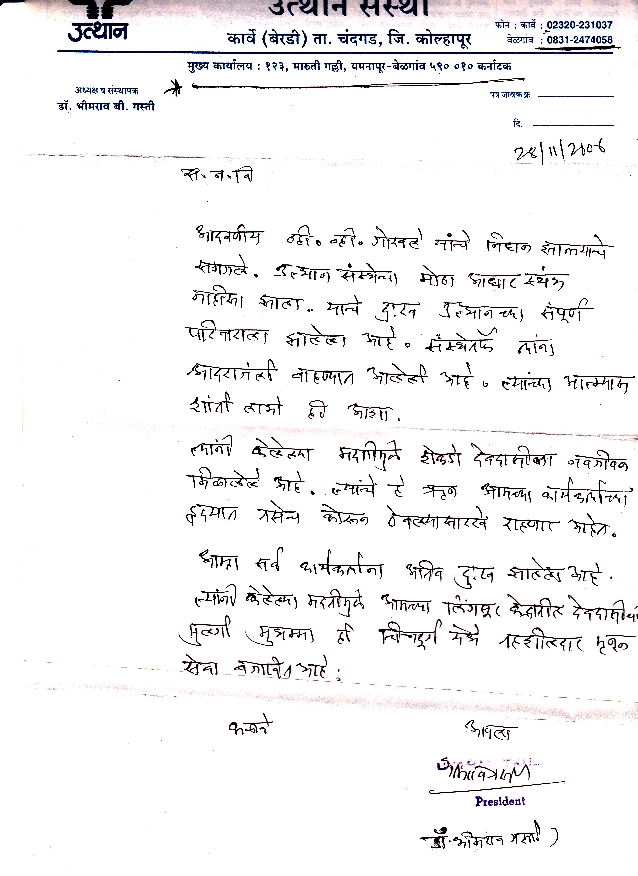 उत्थान संस्था
उत्थान
कार्वे (बेरडी) ता. चंदगड, जि. कोल्हापूर
फोन : कार्वे : 02320-231037
बेळगांव : 0831-2474058
मुख्य कार्यालय : १२३, मारुती गल्ली, यमनापूर-बेळगांव ५९० ०१० कर्नाटक
अध्यक्ष व संस्थापक
डॉ. भीमराव बी. गस्ती
पत्र जावक क्र
दि.
28/11/2006
स. न. वि
आदरणीय व्ही. व्ही. गोखले यांचे निधन झाल्याचे
समजले. उत्थान संस्थेचा मोठा आधार स्थंब
नाहीसा झाला. याचे दुःख उत्थानच्या संपूर्ण
परिवाराला झालेला आहे. संस्थेतर्फे त्यांना
आदरांजली वाहण्यात आलेली आहे. त्यांच्या आत्म्यास
शांती लाभो ही आशा.
त्यांनी केलेल्या मदतीमुळे शेकडो देवदासींना नवजीवन
मिळालेले आहे. त्यांचे हे ऋण आमच्या कार्यकर्त्यांच्या
हृदयात तसेच कोरून ठेवल्यासारखे राहणार आहेत.
आम्हा सर्व कार्यकर्त्यांना अतिव दुःख झालेला आहे.
त्यांनी केलेल्या मदतीमुळे आमच्या केंद्रातील देवदासीची
मुलगी ही येथे तहशीलदार म्हणून
सेवा बजावित आहे.
कळावे
आपला
President
डॉ. भीमराव गस्ती)